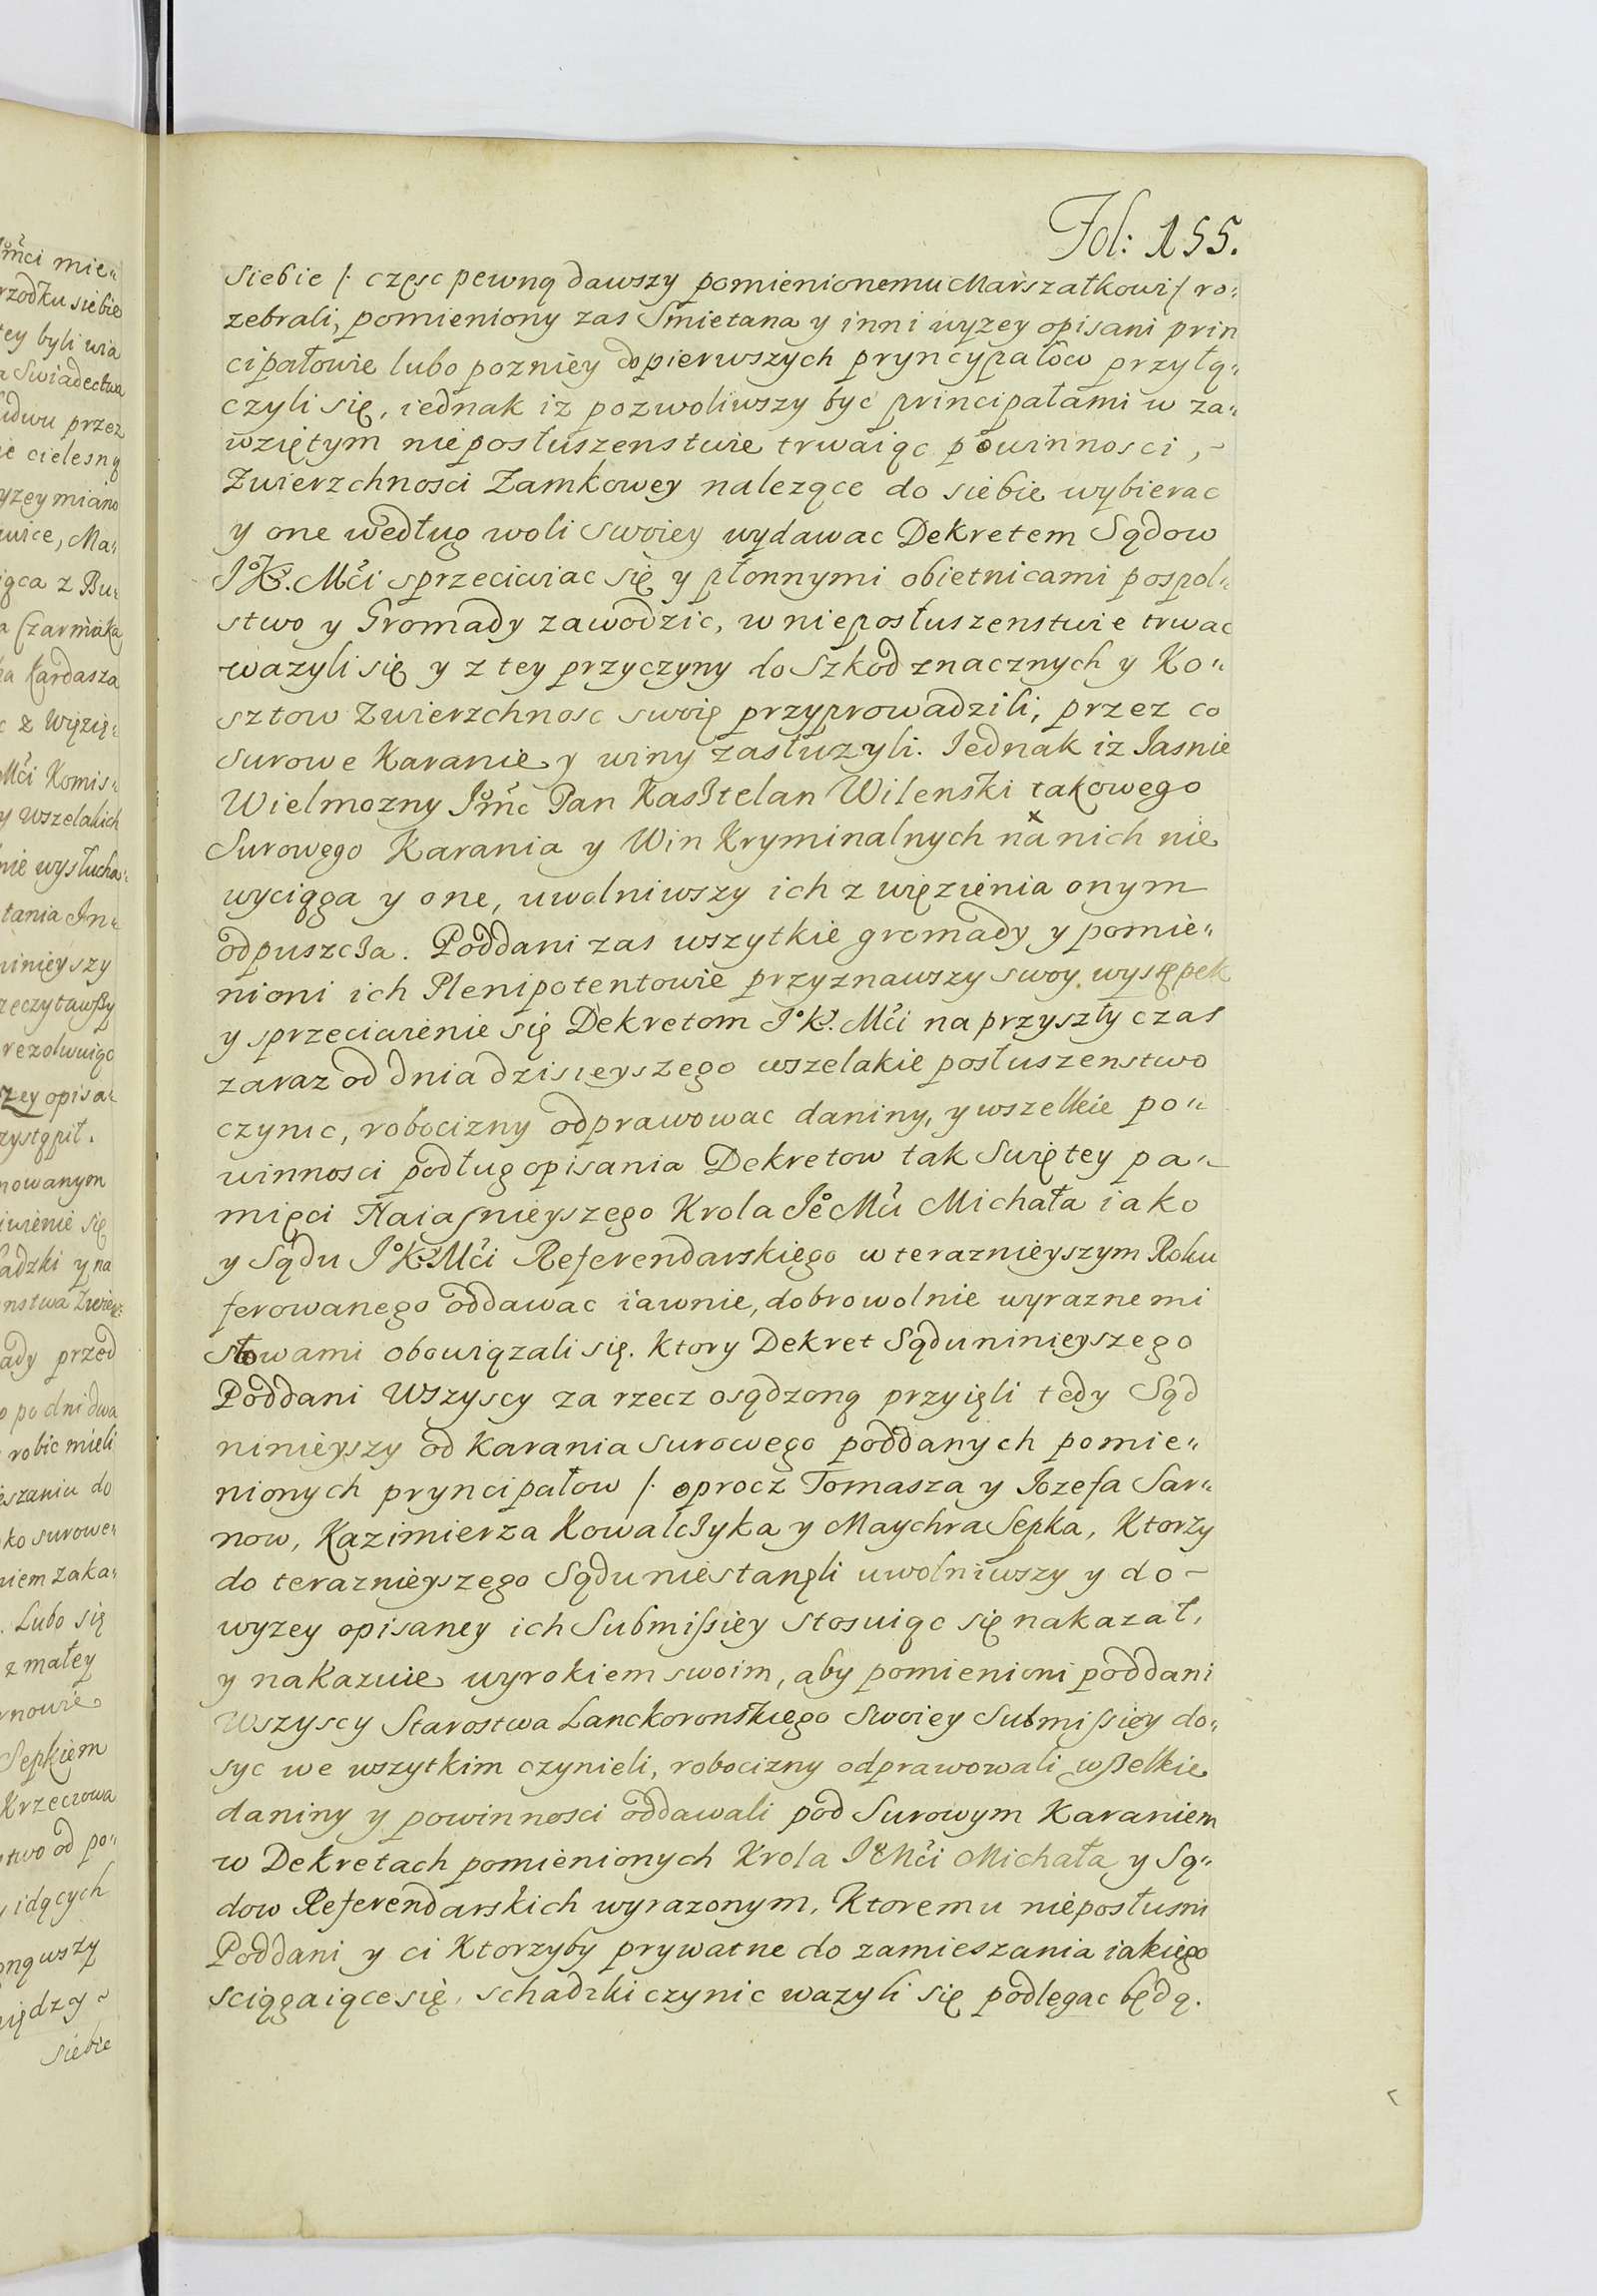 Fol: 155.
siebie /: częsc pewną dawszy pomienionemu Marszałkowi / ro:
zebrali, pomieniony zas Smietana y inni wyzey opisani prin
cipałowie lubo pozniey do pierwszych pryncypałow przyłą:
czyli się, iednak iz pozwoliwszy byc principałami w za:
wziętym nieposłuszenstwie trwaiąc powinnosci, ~
Zwierzchnosci Zamkowey nalezące do siebie wybierac
y one według woli swoiey wydawac Dekretem Sądow
J°K. Mći sprzeciwiac się y płonnymi obietnicami pospol:
stwo y Gromady zawodzic, w nieposłuszenstwie trwac
wazyli się y z tey przyczyny do szkod znacznych y Ko:
sztow Zwierzchnosc swoię przyprowadzili, przez co
surowe Karanie y winy zasłuzyli. Jednak iz Jasnie
Wielmozny Jm̃c Pan Kasztelan Wilenski takowego
Surowego Karania y Win Kryminalnych na nich nie
wyciąga y one, uwolniwszy ich z więzienia onym
odpuszcza. Poddani zas wszytkie gromady y pomie:
nioni ich Plenipotentowie przyznawszy swoy występek
y sprzeciwienie się Dekretom J°K. Mći na przyszły czas
zaraz od dnia dzisieyszego wszelakie posłuszenstwo
czynic, robocizny odprawowac daniny, y wszelkie po:
winnosci podług opisania Dekretow tak Swiętey pa:
mięci Naiasnieyszego Krola Je° Mći Michała iako
y Sądu J°K Mći Referendarskiego w teraznieyszym Roku
ferowanego oddawac iawnie, dobrowolnie wyraznemi
słowami obowiązali się. Ktory Dekret Sądu ninieyszego
Poddani Wszyscy za rzecz osądzoną przyięli tedy Sąd
ninieyszy od Karania surowego poddanych pomie:
nionych pryncipałow /: oprocz Tomasza y Jozefa Sar:
now, Kazimierza Kowalczyka y Maychra Sepka, Ktorzy
do teraznieyszego Sądu niestanęli uwolniwszy y do ~
wyzey opisaney ich Submissiey stosuiąc się nakazał,
y nakazuie wyrokiem swoim, aby pomienioni poddani
Wszyscy Starostwa Lanckoronskiego swoiey Submissiey do:
syc we wszytkim czynieli, robocizny odprawowali wßelkie
daniny y powinnosci oddawali pod Surowym Karaniem
w Dekretach pomienionych Krola J° Mći Michała y Są:
dow Referendarskich wyrazonym, Ktoremu nieposłusni
Poddani y ci Ktorzyby prywatne do zamieszania iakiego
sciągaiące się, schadzki czynic wazyli się podlegac będą.